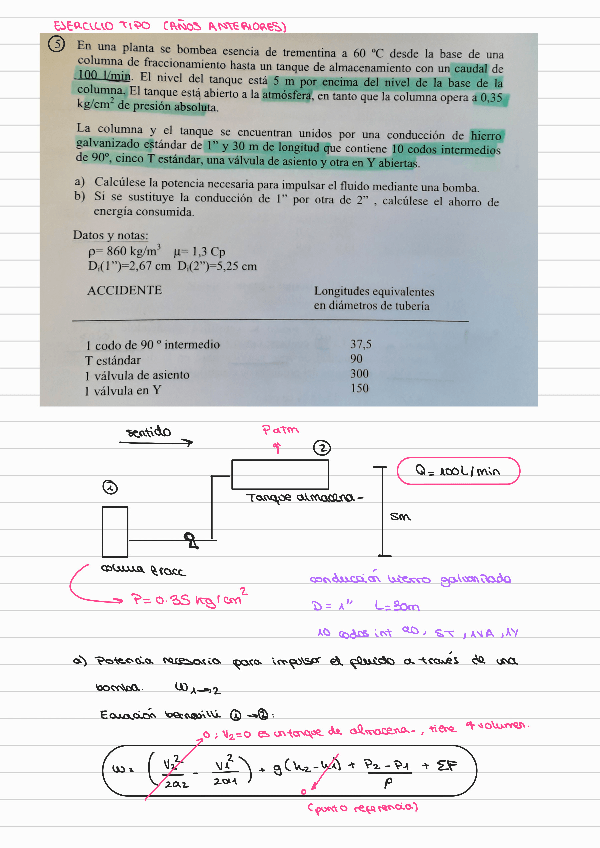 EJERCICIO TIPO (AÑOS ANTERIORES)
5 En una planta se bombea esencia de trementina a 60 ºC desde la base de una
columna de fraccionamiento hasta un tanque de almacenamiento con un caudal de
100 l/min. El nivel del tanque está 5 m por encima del nivel de la base de la
columna. El tanque está abierto a la atmósfera, en tanto que la columna opera a 0,35
kg/cm² de presión absoluta.
La columna y el tanque se encuentran unidos por una conducción de hierro
galvanizado estándar de 1” y 30 m de longitud que contiene 10 codos intermedios
de 90º, cinco T estándar, una válvula de asiento y otra en Y abiertas.
a) Calcúlese la potencia necesaria para impulsar el fluido mediante una bomba.
b) Si se sustituye la conducción de 1” por otra de 2” , calcúlese el ahorro de
energía consumida.
Datos y notas:
ρ= 860 kg/m³ μ= 1,3 Cp
Di(1”)=2,67 cm Di(2”)=5,25 cm
ACCIDENTE Longitudes equivalentes
en diámetros de tubería
1 codo de 90 º intermedio 37,5
T estándar 90
1 válvula de asiento 300
1 válvula en Y 150
sentido
Patm
2
Q = 100L/min
1
Tanque almacena-
5m
columna fracc
P=0.35 kg/cm²
conducción hierro galvanizado
D= 1" L=30m
10 codos int 90, 5T, 1VA, 1Y
a) Potencia necesaria para impulsar el fluido a través de una
bomba. W1→2
Ecuación bernouilli 1→2:
0; V2=0 es un tanque de almacena-, tiene ↑ volumen.
W= (V2²/2α2 - V1²/2α1) + g(h2-h1) + P2-P1/ρ + ΣF
0
(punto referencia)